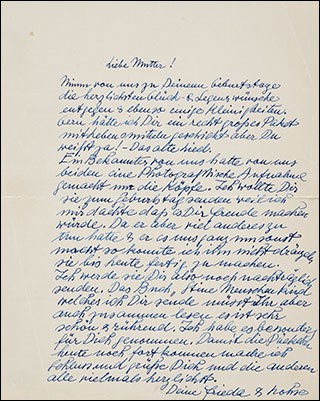 Liebe Mutter!
Nimm von uns zu Deinem Geburtstage
die herzlichsten Glück & Segenswünsche
entgegen & ebenso einige Kleinigkeiten.
Gern hätte ich Dir ein recht großes Paket
mit geschickt aber Du
weißt ja! - Das alte Lied.
Ein Bekannter von uns hatte von uns
beiden eine Photografische Aufnahme
gemacht nur die Köpfe. Ich wollte Dir
sie zum Geburtstag senden weil ich
mir dachte daß es Dir Freude machen
würde. Da er aber viel anderes zu
tun hatte & er es uns ganz umsonst
macht so konnte ich ihn nicht drängeln
sie bis heute fertig zu machen.
Ich werde sie Dir also noch nachträglich
senden. Das Buch, Menschenkind
welches ich Dir sende müsst Ihr aber
auch zusammen lesen es ist sehr
schön & rührend. Ich habe es besonders
für Dich genommen. Damit die Päckchen
heute noch fort kommen mache ich
Schluss und grüße Dich und die anderen
alle vielmals herzlichst.
Deine Frieda &